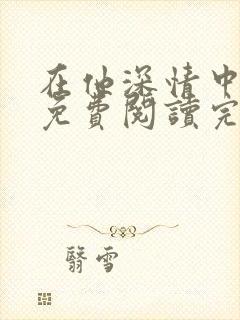 在他深情中
免費閱讀完
翳雪